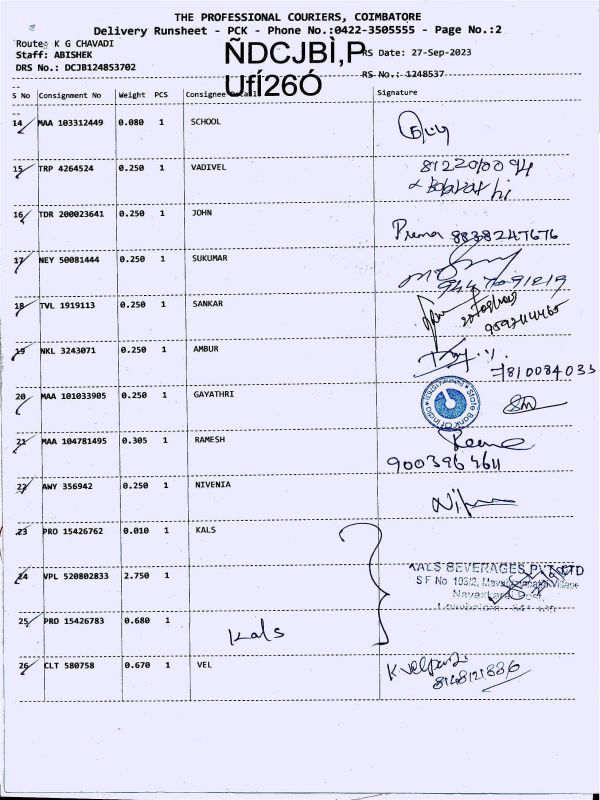 THE PROFESSIONAL COURIERS, COIMBATORE
Delivery Runsheet - PCK - Phone No.:0422-3505555 - Page No.:2
Route: K G CHAVADI
Staff: ABISHEK
DRS No.: DCJB124853702
ÑDCJBÌ,P
UfÍ26Ó
RS Date: 27-Sep-2023
RS No.: 1248537
S No Consignment No Weight PCS Consignee Detail Signature
14 MAA 103312449 0.080 1 SCHOOL
15 TRP 4264524 0.250 1 VADIVEL
16 TDR 200023641 0.250 1 JOHN Prema 8838247676
17 NEY 50081444 0.250 1 SUKUMAR 9447091219
18 TVL 1919113 0.250 1 SANKAR
19 NKL 3243071 0.250 1 AMBUR
7810084033
20 MAA 101033905 0.250 1 GAYATHRI State Bank of India
21 MAA 104781495 0.305 1 RAMESH
9003964611
22 AWY 356942 0.250 1 NIVENIA
23 PRO 15426762 0.010 1 KALS
24 VPL 520802833 2.750 1
KALS BEVERAGES PVT LTD
S F No 103/2,
25 PRO 15426783 0.680 1
Kals
26 CLT 580758 0.670 1 VEL
8148121886